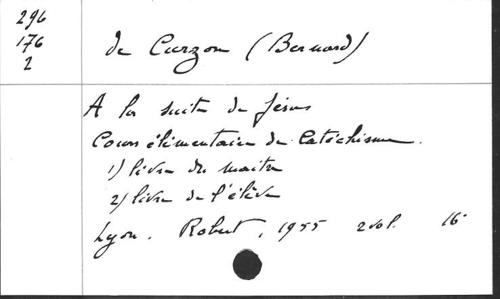 296
176
2
de Curzon (Bernard)
A la suite de Jésus
Cours élémentaire de Catéchisme.
1) livre du maitre
2) livre de l'élève
Lyon. Robert, 1955 2 vol. 16°